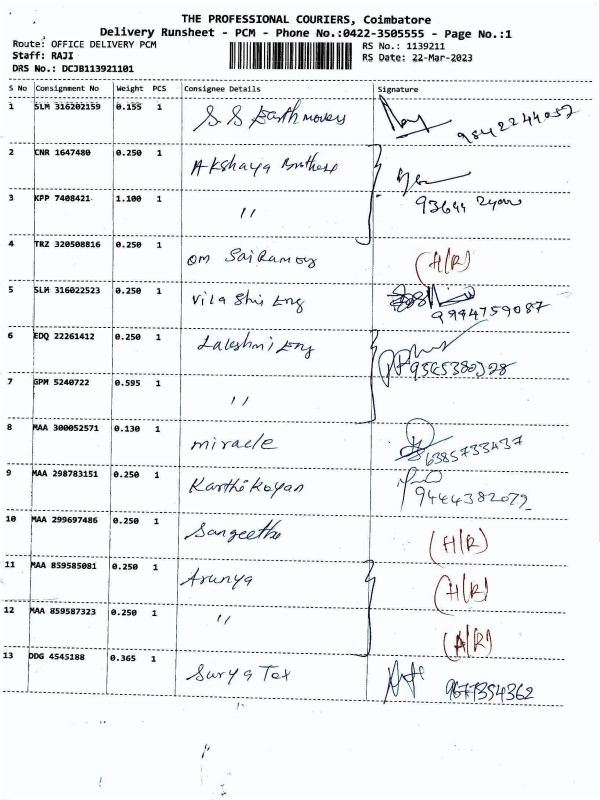 THE PROFESSIONAL COURIERS, Coimbatore
Delivery Runsheet - PCM - Phone No.:0422-3505555 - Page No.:1
Route: OFFICE DELIVERY PCM
Staff: RAJI
DRS No.: DCJB113921101
RS No.: 1139211
RS Date: 22-Mar-2023
S No Consignment No Weight PCS Consignee Details Signature
1 SLM 316202159 0.155 1 S.S Earthmovers 9842244057
2 CNR 1647480 0.250 1 Akshaya Brothers
3 KPP 7408421 1.100 1 "
4 TRZ 320508816 0.250 1 om Sairam (H/R)
5 SLM 316022523 0.250 1 9994759087
6 EDQ 22261412 0.250 1 Lakshmi Eng
7 GPM 5240722 0.595 1 "
8 MAA 300052571 0.130 1 miracle 6385733437
9 MAA 298783151 0.250 1 Karthikeyan 9444382072
10 MAA 299697486 0.250 1 Sangeetha (H/R)
11 MAA 859585081 0.250 1 Arunya (H/R)
12 MAA 859587323 0.250 1 " (A/R)
13 DDG 4545188 0.365 1 Surya Tex 9677354362